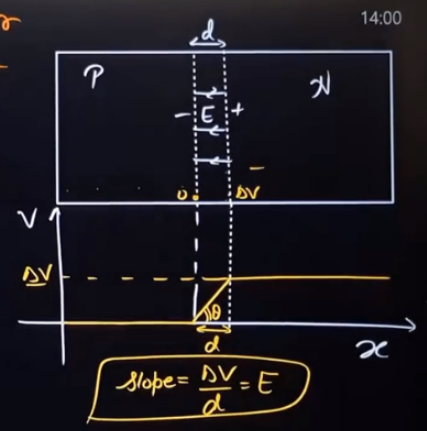 14:00
d
P
N
- E +
-
0 ΔV
V
ΔV
θ
d
x
slope = ΔV/d = E